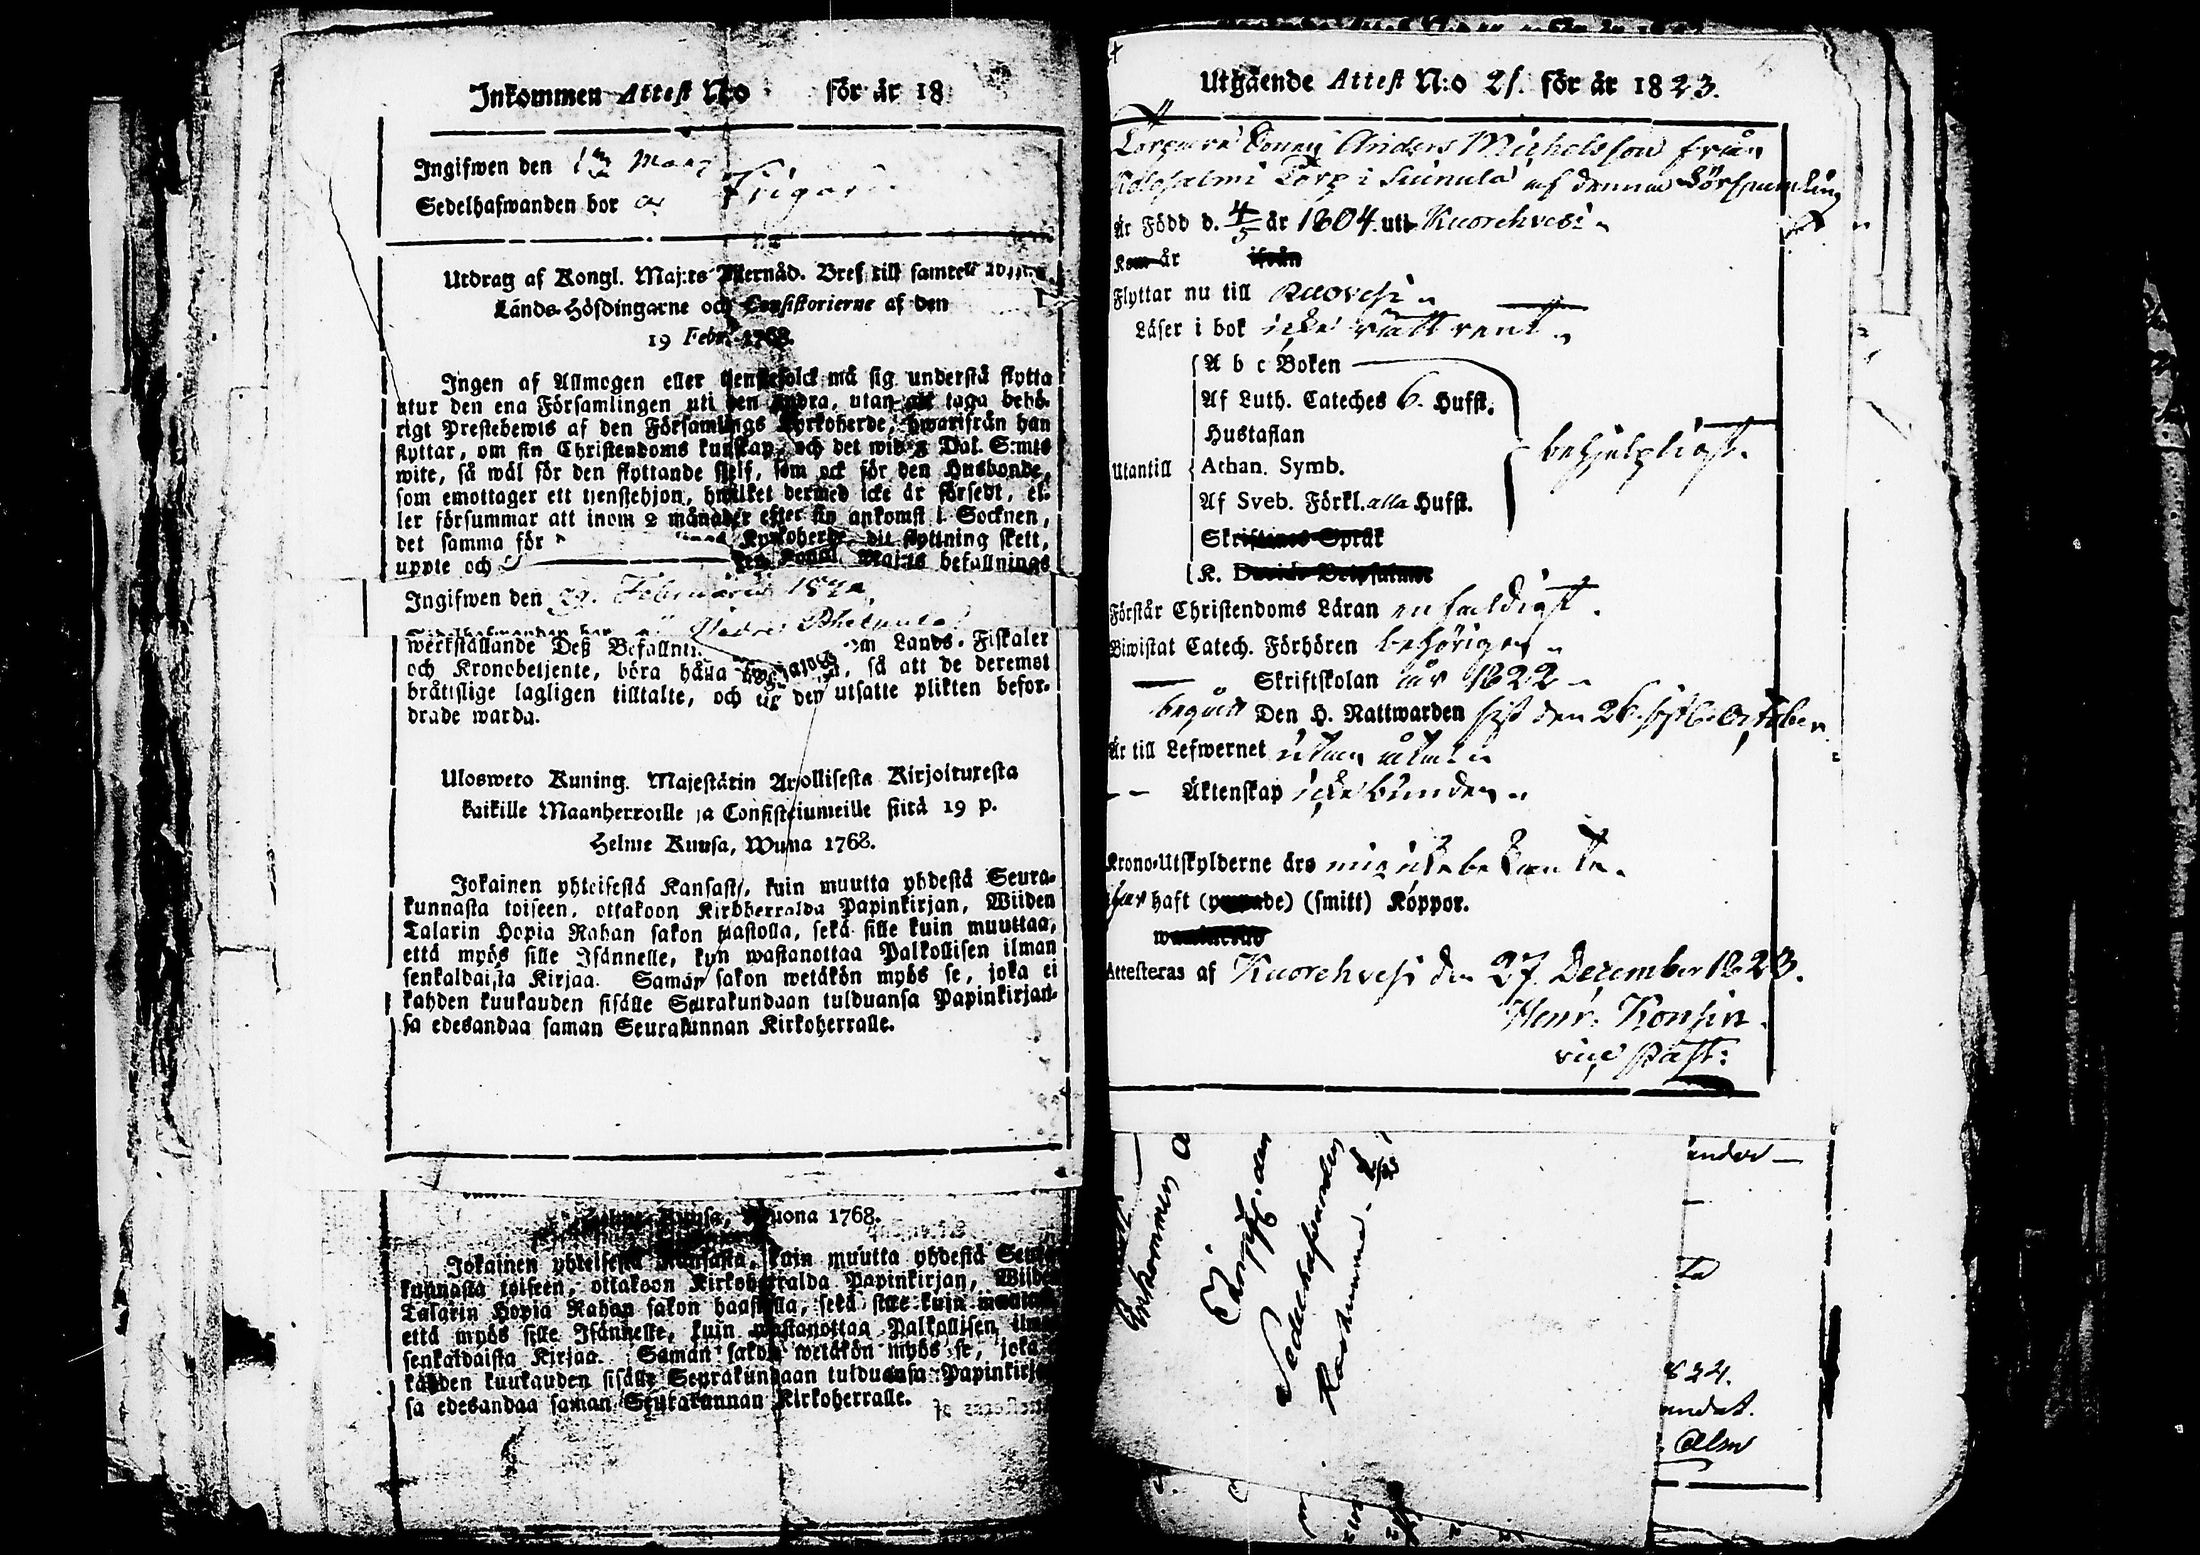 Inkommen Attest No för år 18
Ingifwen den
Sedelhafwanden bor
Utdrag af Kongl. Maj:ts Bref till samtel.
Lands-Höfdingarne och Consistorierne af den
19 Febr. 1768.
Ingen af Allmogen eller tjenstefolck må sig understå flytta
utur den ena Församlingen uti den andra, utan att taga behö-
rigt Prestebewis af den Församlings Kyrkoherde, hwarifrån han
flyttar, om sin Christendoms kunskap, och det wid Dal. S:mts
wite, så wäl för den flyttande sjelf, som ock för den Husbonde,
som emottager ett tjenstehjon, hwilket dermed icke är försedt, el-
ler försummar att inom 2 månader efter sin ankomst i Socknen,
det samma för Kyrkoherde, dit flyttning skett,
uppte och Kongl Maj:ts befallnings
Ingifwen den 29. Februarii
werkställande Deß Befallni Lands-Fiskaler
och Kronobetjente, böra hålla så att de deremot
bråtislige lagligen tilltalte, och den utsatte plikten befor-
drade warda.
Ulosweto Kuning. Majestätin Armollisesta Kirjoituxesta
kaikille Maanherroille ja Consistoriumeille siitä 19 p.
Helme Kuusa, Wuna 1768.
Jokainen yhteisestä Kansasta, kuin muutta yhdestä Seura-
kunnasta toiseen, ottakoon Kirkoherralda Papinkirjan, Wiiden
Talarin Hopia Rahan sakon haastolla, sekä sille kuin muuttaa,
että myös sille Isännelle, kun wastanottaa Palkollisen ilman
senkaldaista Kirjaa. Saman sakon wetäkön myös se, joka ei
kahden kuukauden sisälle Seurakundaan tulduansa Papinkirjan-
sa edesandaa saman Seurakunnan Kirkoherralle.
Kuusa, Wuona 1768.
Jokainen yhteisestä Kansasta, kuin muutta yhdestä Seura
kunnasta toiseen, ottakoon Kirkoherralda Papinkirjan, Wiide
Talarin Hopia Rahan sakon haastolla, sekä sille kuin muutta
että myös sille Isännelle, kuin wastanottaa Palkollisen ilma
senkaldaista Kirjaa. Saman sakon wetäkön myös se, joka
kahden kuukauden sisälle Seurakundaan tulduansa Papinkirja
sa edesandaa saman Seurakunnan Kirkoherralle.
Utgående Attest N:o 21. för år 1823.
Anders Michelsson från
Torp i Suinula af denna Församling
Är Född d. 4/5 år 1804. uti Kuorehvesi
Kom år ifrån
Flyttar nu till Ruovesi
Läser i bok icke rätt rent
A b c Boken
Af Luth. Cateches 6. Hufst.
Hustaflan
Utantill Athan. Symb. behjelpligt.
Af Sveb. Förkl. alla Hufst.
Skriftenes Språk
K.
Förstår Christendoms Läran enfaldigt.
Biwistat Catech. Förhören behörigen
Skriftskolan år 1822
begått Den H. Nattwarden sist den 26 October
Är till Lefwernet utan
Äktenskap icke bunden
Krono-Utskylderne äro mig icke bekanta.
har haft (smitt) Koppor.
Attesteras af Kuorehvesi den 27 December 1823.
Henr. Konsin
vice Past:
Inkommen
Sedelhafvanden
824.